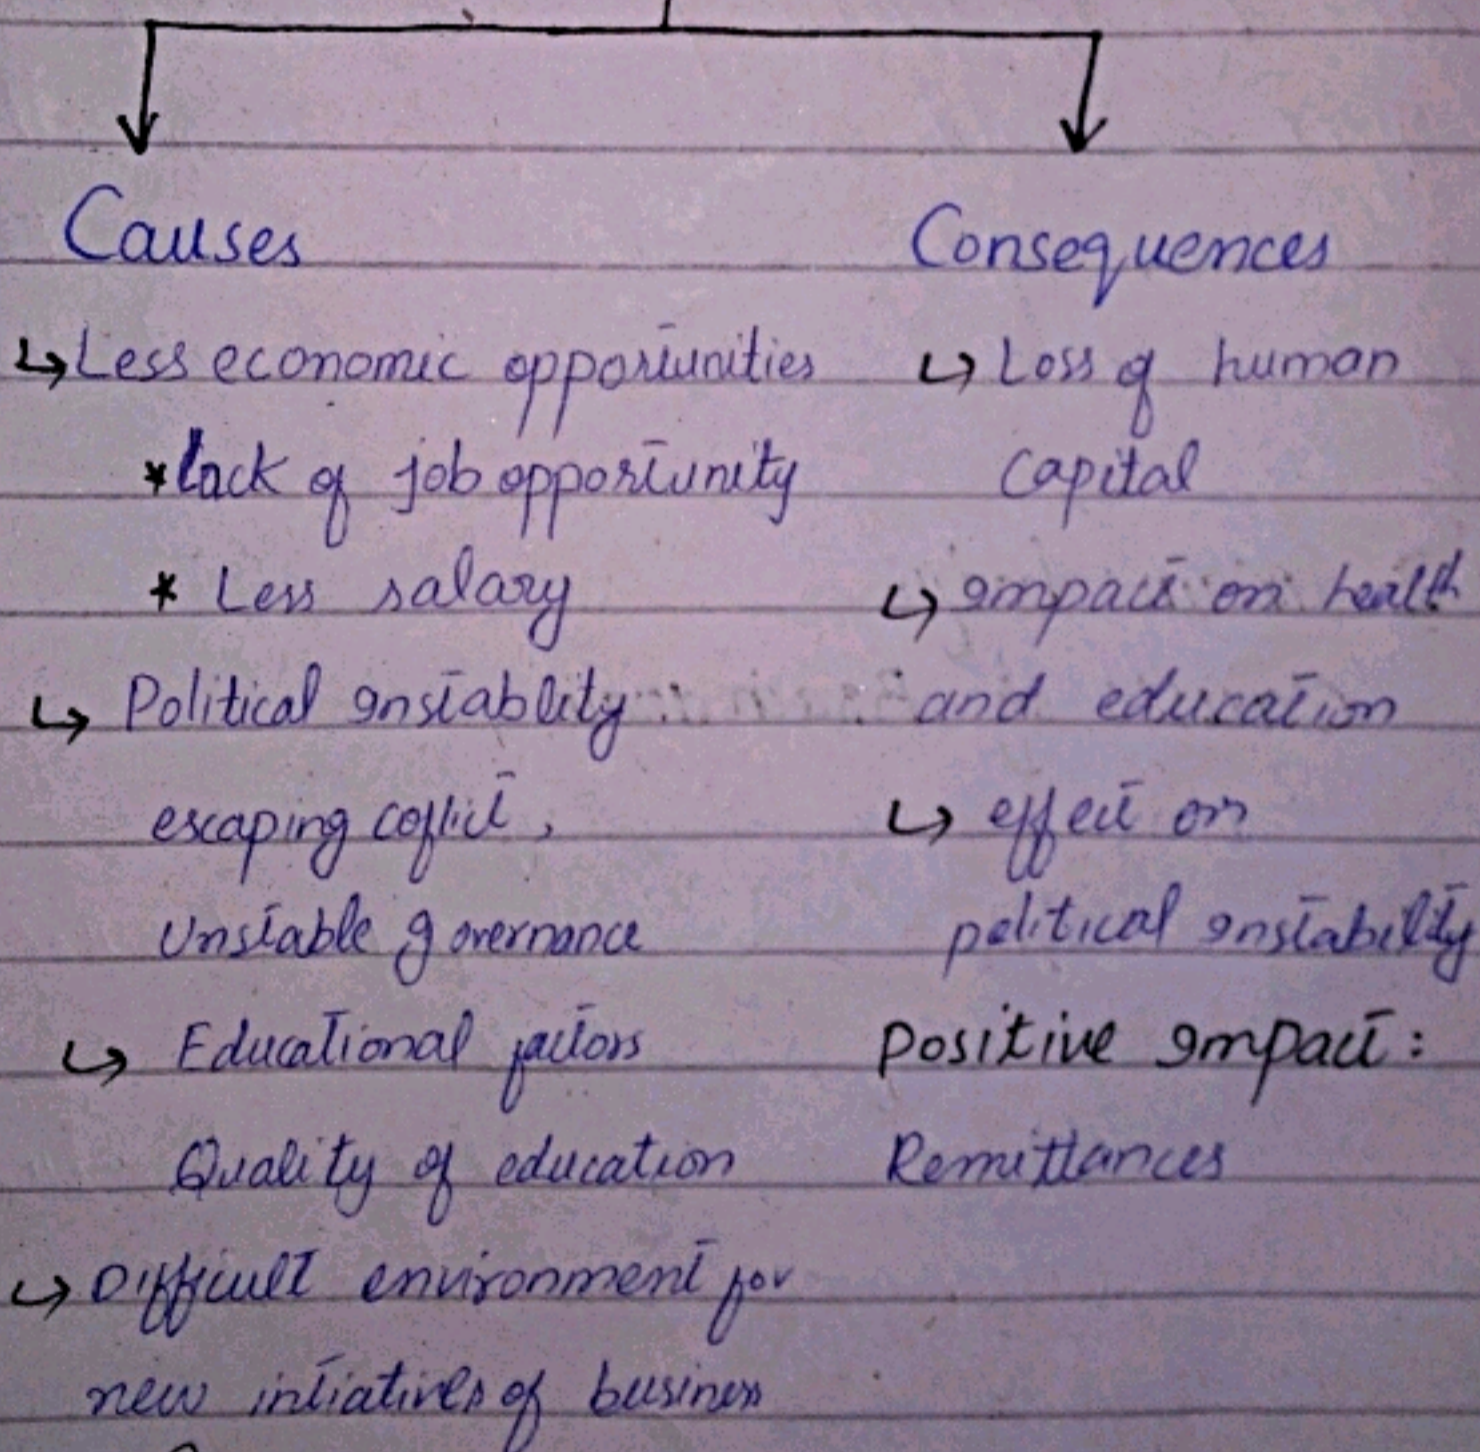 Causes
↳ Less economic opportunities
* lack of job opportunity
* Less salary
↳ Political Instablity
escaping coflict,
Unstable governance
↳ Educational factors
Quality of education
↳ Difficult environment for
new intiatives of business
Consequences
↳ Loss of human
Capital
↳ Impact on health
and education
↳ effect on
political Instability
Positive Impact:
Remittances